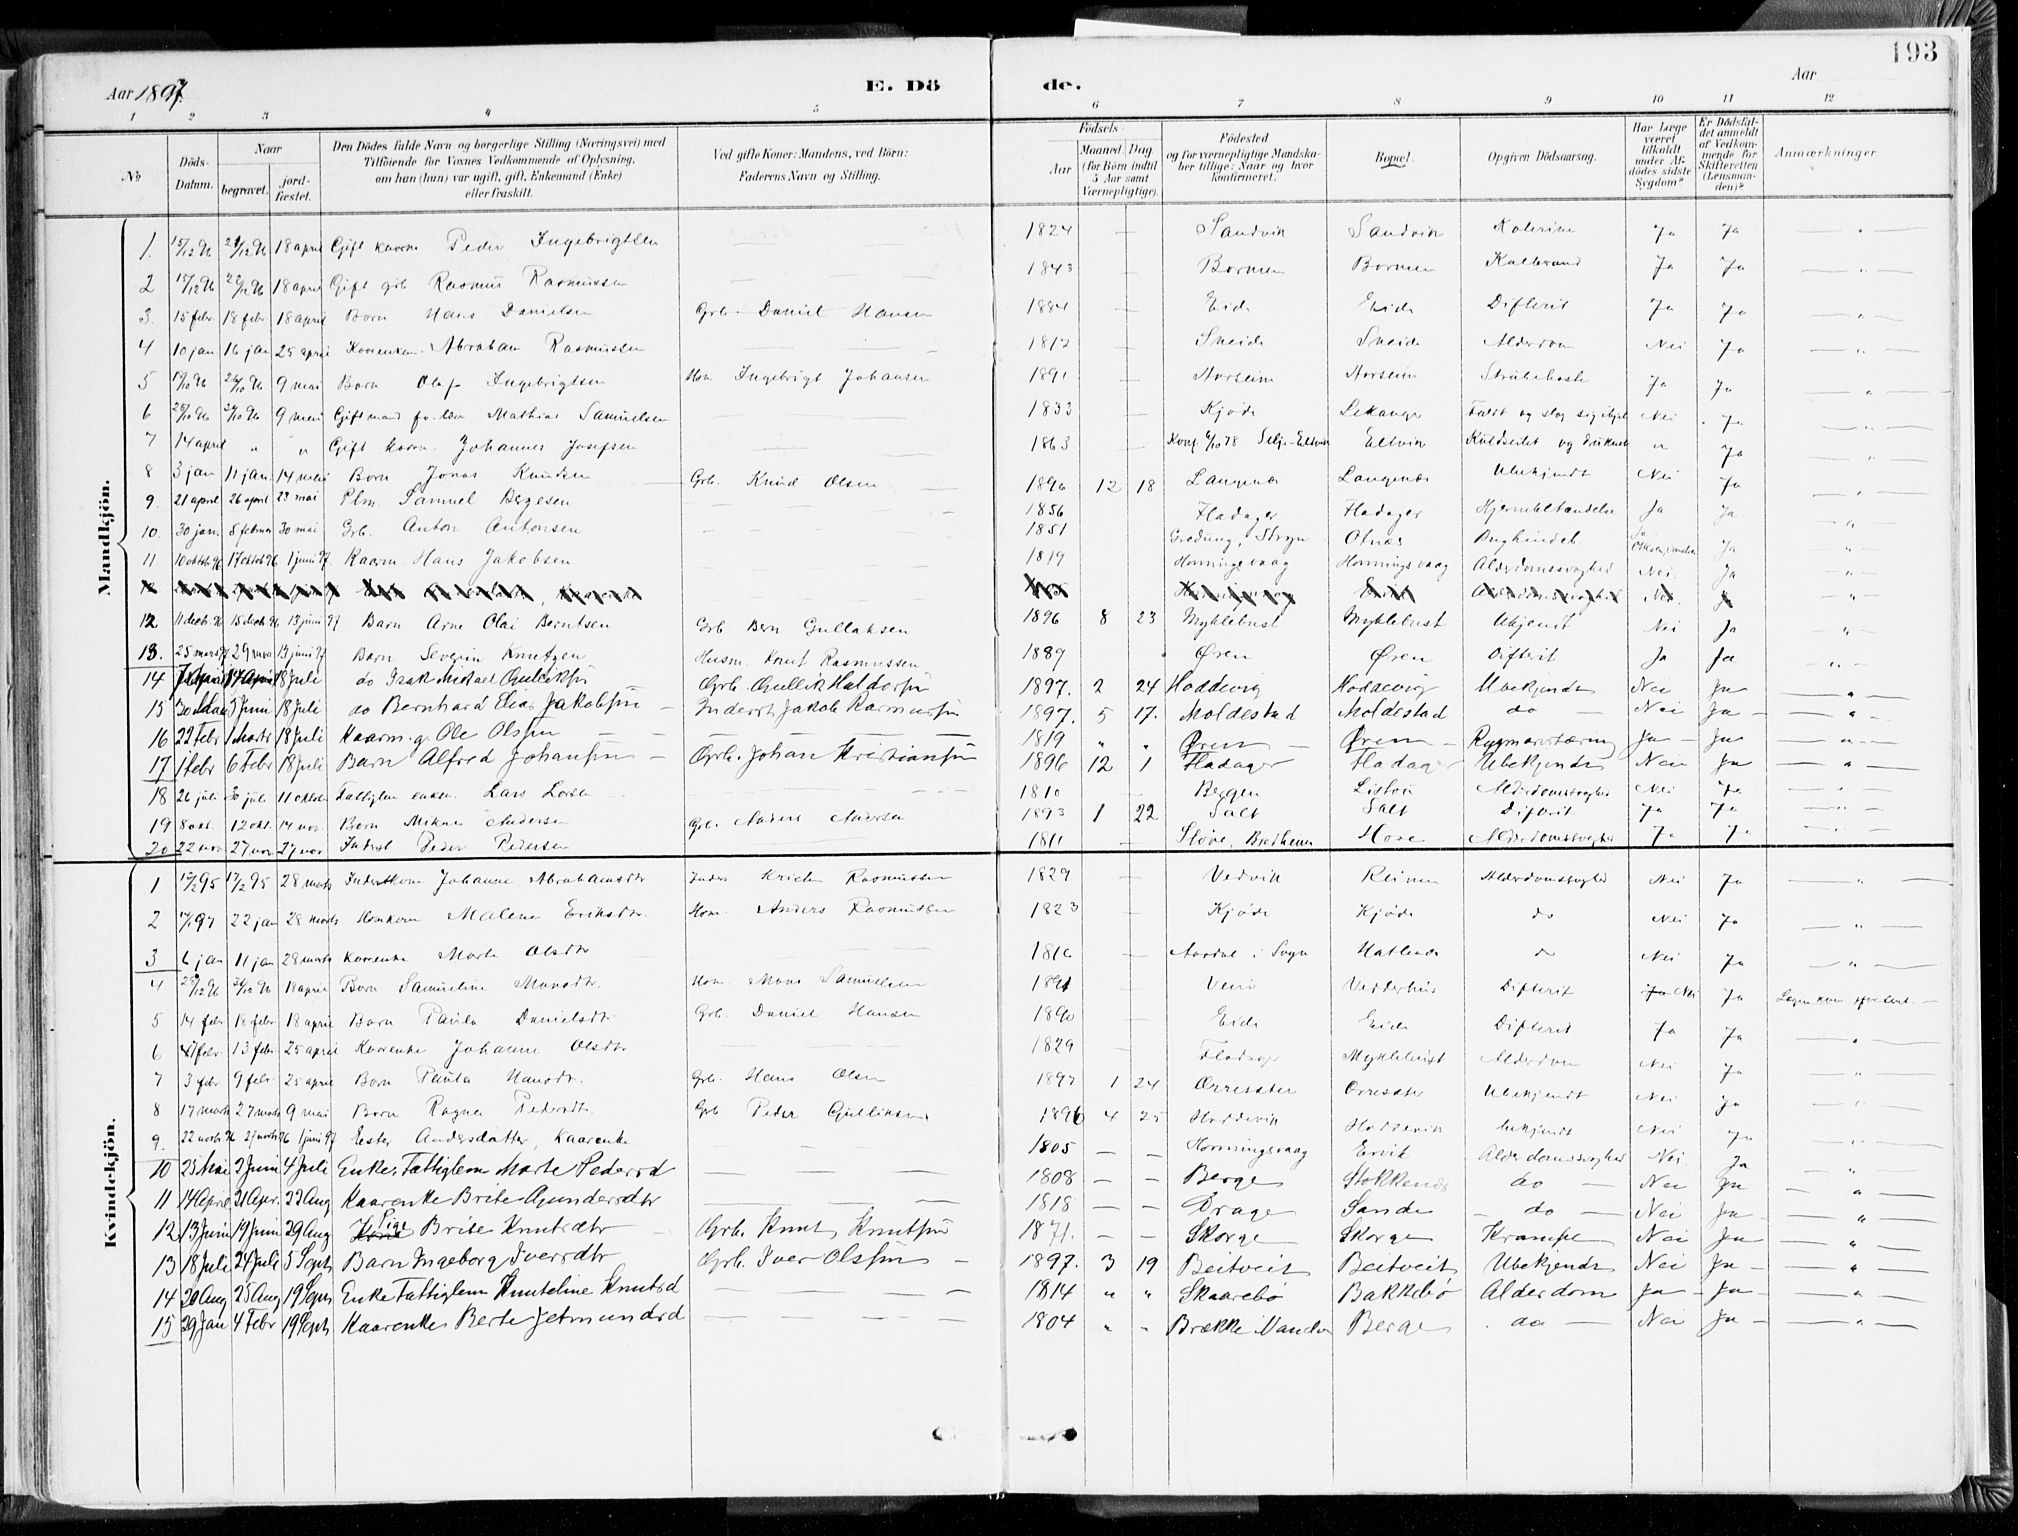 193
Aar 1897. E. Dö de. Aar
1 2 3 4 5 6 7 8 9 10 11 12
No
Döds-Datum.
Naar begravet. jord-fæstet.
Den Dödes fulde Navn og borgerlige Stilling (Næringsvei) med Tilföiende for Voxnes Vedkommende af Oplysning, om han (hun) var ugift, gift, Enkemand (Enke) eller fraskilt.
Ved gifte Koner: Mandens, ved Börn: Faderens Navn og Stilling.
Födsels-Aar Maaned. Dag. (for Börn indtil 5 Aar samt Værnepligtige).
Födested og for værnepligtige Mandska-ber tillige: Naar og hvor konfirmeret.
Bopæl.
Opgiven Dödsaarsag.
Har Læge været tilkaldt under Af-dödes sidste Sygdom?
Er Dödsfal-det anmeldt af Vedkom-mende for Skifteretten (Lensman-den)?
Anmærkninger.
Mandkjön.
1. 15/12 96 21/12 96 18 april Gift kaarm Peder Ingebrigtsen 1824 — Sandvik Sandvik Ja Ja
2 15/12 96 22/12 96 18 april Gift grb Rasmus Rasmussen — 1843 — Bormen Bormen Koldbrand Ja Ja
3. 15 febr 18 febr 18 april Barn Hans Danielsen Grb. Daniel Hansen 1884 — Eide Eide Difterit Ja Ja
4 10 jan 16 jan 25 april Abraham Rasmussen — 1812 — Alderdom Nei Ja
5 19/10 96 26/10 96 9 mai Barn Olaf Ingebrigtsen Hm. Ingebrigt Johansen 1891 — Norseim Norseim Strubehoste Ja Ja
6 9 mai Gift mand Mathias Samuelsen 1833 — Kjøde Lekanger Faldt og slog sig ihjel Nei Ja
7 14 april " " Gift kaarm. Johannes Josefsen 1863 — Konf. 6/10 78 Selje-Eltvik Eltvik Kuldseilet og druknet " Ja
8 3 jan 11 jan 14 mai Barn Jonas Knudsen Grb. Knud Olsen 1896 12 18 Langenes Langenes Ubekjendt Nei Ja
9. 21 april 26 april 23 mai Plm. Samuel Børgesen — 1856 Fladager Fladager Hjernebetændelse Ja Ja
10. 30 jan. 8 februar 30 mai Grb. Anton Antonsen — 1851 Grødung, Stryn Otnes Bughindebet. Ja Ja
11 10 oktob 96 17 oktob 96 1 juni 97. Kaarm. Hans Jakobsen 1819 Honningsvaag Honningsvaag Alderdomssvaghed Nei. Ja
12 11 decb. 96 15 decb. 96 13 juni 97 Barn Arne Olai Berntsen Grb. Bern Gullaksen 1896 8 23 Myklebust Myklebust Ukjendt Nei Ja
13. 25 mars 97 29 mars 13 juni 97 Barn Severin Knutzen Husm. Knut Rasmussen 1889 Øren Øren Difterit Ja Ja
14 18 Juli do Isak Mikael Gullikssn Grb. Gullik Haldorsn 1897. 2 24 Hoddevig Hoddevig Ubekjendt Nei Ja
15 30 Mai 5 Juni 18 Juli do Bernhard Elias Jakobsen — Inderst Jakob Rasmussn 1897. 5 17. Moldestad Moldestad do — Nei Ja
16 22 Febr 1 Marts 18 Juli Kaarm. g. Ole Olssen — 1819 " " Øren Øren Rygmarvstæring Ja — Ja
17 1 Febr 6 Febr 18 Juli Barn Alfred Johanssen Grb. Johan Kristianssn 1896 12 1 Fladager Fladager Ubekjendt Nei Ja
18 26 juli 30 juli 11 oktober Fattiglem enkem. Lars Larsen 1810 — Bergen Listou Alderdomssvaghed Nei Ja
19 8 okt. 12 okt. 14 nov. Barn Mikael Andersen Grb. Anders Andersen 1893 1 22 Salt Salt Difterit Ja Ja
20 22 nov 27 nov 27 nov Inderst Peder Pedersen 1811 Hove Alderdomssvaghed Ja Ja
Kvindekjön.
1 12/2 95 17/2 95 28 marts Inderstkone Johanne Abrahamsdtr Inders Rasmussen 1829 — Vedvik Reinen Alderdomssvaghed Nei Ja
2 22 jan 28 marts Malene Eriksdtr. Hm. Anders Rasmussen 1823 — Kjøde Kjøde do Nei Ja
3 6 jan 11 jan 28 marts Kaarenke Marte Olsdtr 1816 — Aardal i Sogn Hatlenes do Nei Ja
4 18 april Barn Samueline Monsdtr. Hm. Mons Samuelsen 1891 Vedderhus Difterit Nei Ja
5 14 febr 18 febr 18 april Barn Paula Danielsdtr Grb. Daniel Hansen 1890 — Eide Eide Difterit Ja Ja
6 7 febr 13 febr 25 april Kaarenke Johanne Olsdtr 1829 — Fladager Myklebust Alderdom Nei Ja
7 3 febr 9 febr 25 april Barn Paula Hansdtr. Grb. Hans Olsen 1897 1 24 Orresater Orresater Ubekjendt Nei Ja
8 17 marts 27 marts 9 mai Barn Ragna Pedersdtr. Grb Peder Gulliksen 1896 4 25 Hoddevik Hoddevik Ubekjendt Nei Ja
9. 22 novb 96 27 novb 96 1 juni 97 Ester Andersdatter, Kaarenke — 1805 — — Honningsvaag Ervik Alderdomssvaghed Nei. Ja
10 25 Mai 2 Juni 4 Juli Enke, Fattiglem Marte Pedersd 1808 — — Berge Stokkenes do — Nei Ja
11 14 April 21 Apr. 22 Aug Kaarenke Brite Gundersdtr 1818 — — Drage Sande — do — Nei Ja
12 13 Juni 19 Juni 29 Aug Pige Brite Knutsdtr Grb. Knut Knutssn 1871. — — Skorge Skorge Krampe Nei Ja
13 18 Juli 24 Juli 5 Septb Barn Ingeborg Iversdtr Grb. Iver Olssen — 1897. 3 19 Beitveit Beitveit Ubekjendt Nei Ja
14 20 Aug 25 Aug 19 Septb Enke Fattiglem Knuteline Knutsd 1814 " " Skaarebø Bakkebø Alderdom Ja — Ja
15 29 Jan 4 Febr 19 Septb Kaarenke Berte Jetmundsd 1804 " " Brække Vandv Berge do — Nei Ja